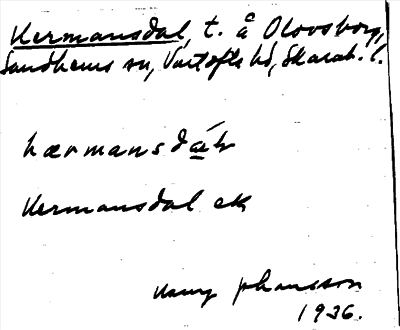 Hermansdal, t. å Olovsborg,
Sandhems sn, Vartofta hd, Skarab. l.
hærmansdá̱ɫ
Hermansdal ek
Harry Johansson
1936.